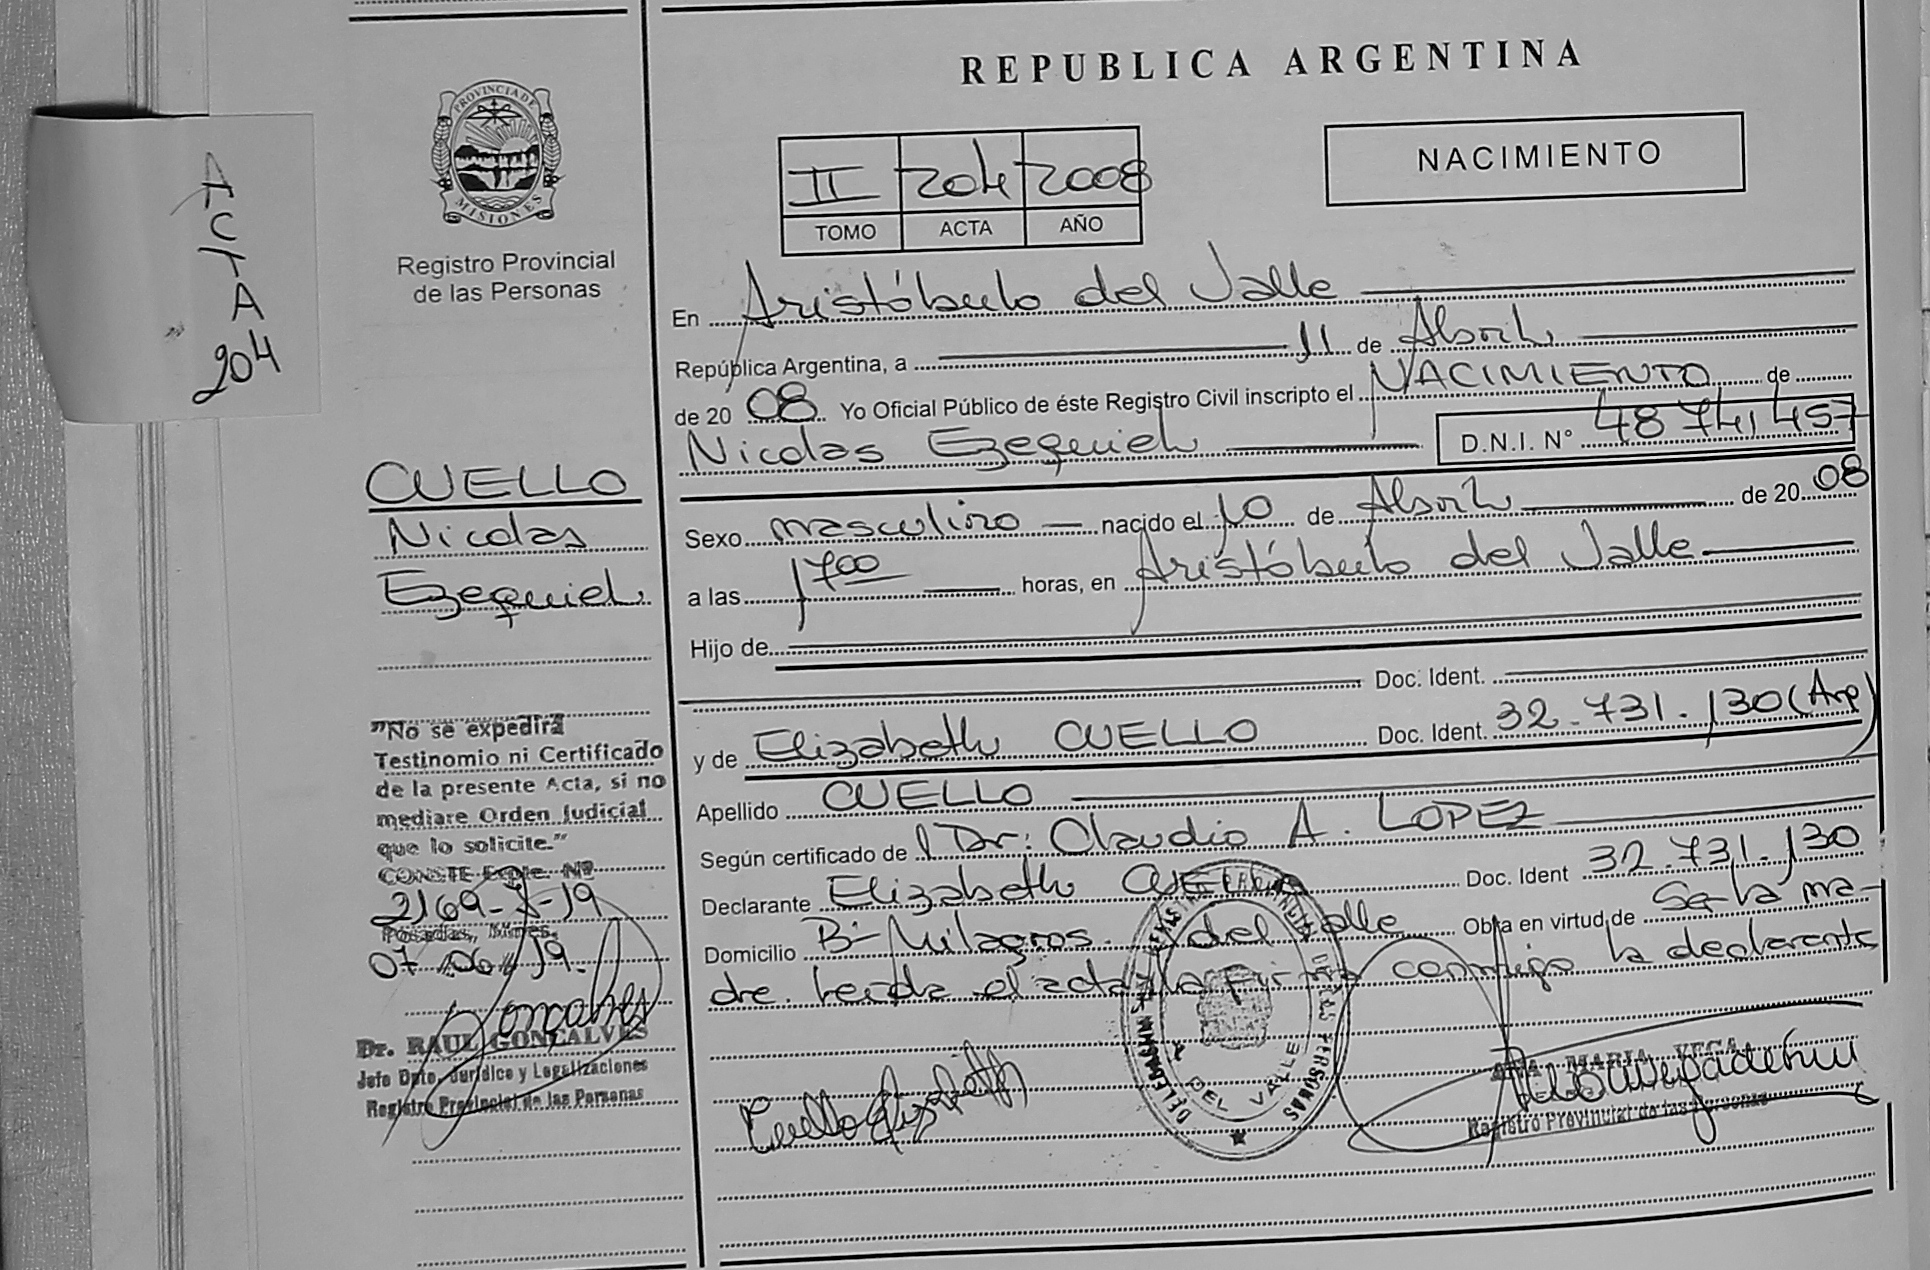 ACTA
204
PROVINCIA DE
MISIONES
Registro Provincial
de las Personas
CUELLO
Nicolas
Ezequiel
"No se expedirá
Testimonio ni Certificado
de la presente Acta, si no
mediare Orden Judicial
que lo solicite."
CONSTE Expte. Nº
2169-
-19
Posadas, Mnes.
07 06 19.
Dr. RAUL GONCALVES
Jefe Dpto. Jurídico y Legalizaciones
Registro Provincial de las Personas
REPUBLICA ARGENTINA
II 204 2008
TOMO ACTA AÑO
NACIMIENTO
En Aristóbulo del Valle
República Argentina, a 11 de Abril
de 2008 Yo Oficial Público de éste Registro Civil inscripto el NACIMIENTO de
Nicolas Ezequiel D.N.I. Nº 48741457
Sexo masculino nacido el 10 de Abril de 2008
a las 1700 horas, en Aristóbulo del Valle
Hijo de
Doc. Ident.
y de Elizabeth CUELLO Doc. Ident. 32.731.130 (Arg)
Apellido CUELLO
Según certificado de Dr: Claudio A. LOPEZ
Declarante Elizabeth CUELLO Doc. Ident 32.731.130
Domicilio Bº Milagros. del Valle Obra en virtud de Ser la ma-
dre. Leída el acta la firma conmigo la declarante
Cuello Elizabeth
DEL VALLE
ANA MARIA VEGA
Registro Provincial de las Personas